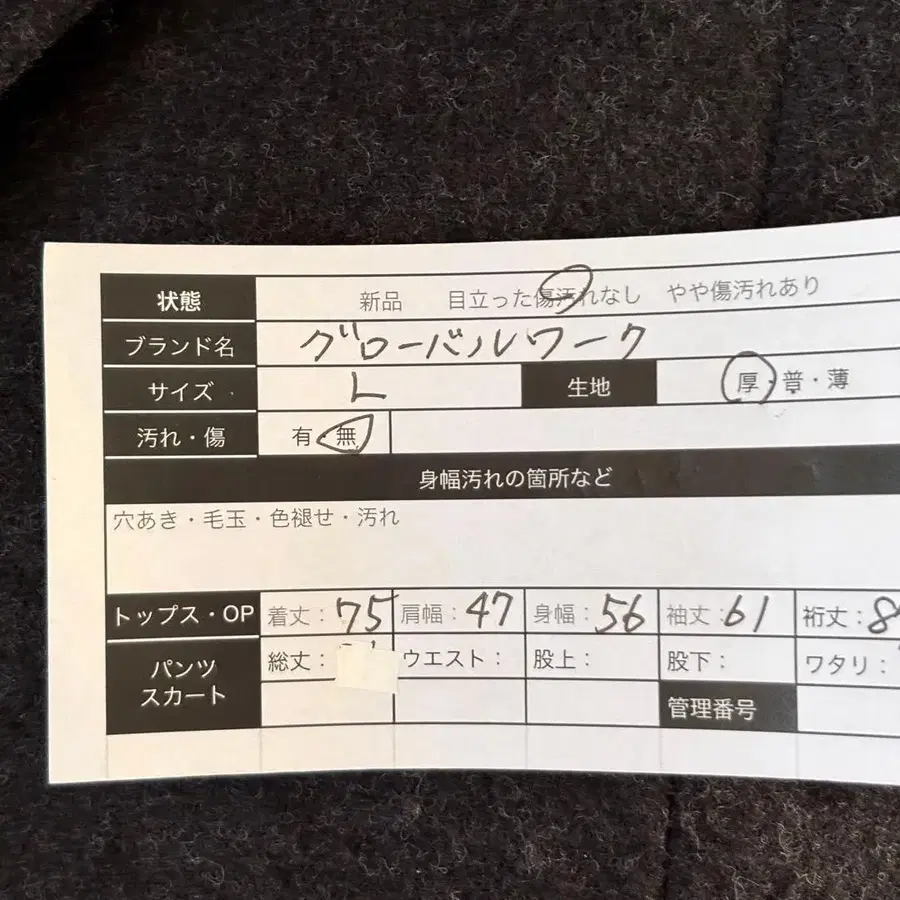 状態 新品 目立った傷汚れなし やや傷汚れあり
ブランド名 グローバルワーク
サイズ L 生地 厚・普・薄
汚れ・傷 有・無
身幅汚れの箇所など
穴あき・毛玉・色褪せ・汚れ
トップス・OP 着丈：75 肩幅：47 身幅：56 袖丈：61 裄丈：8
パンツ 総丈： ウエスト： 股上： 股下： ワタリ：
スカート 管理番号